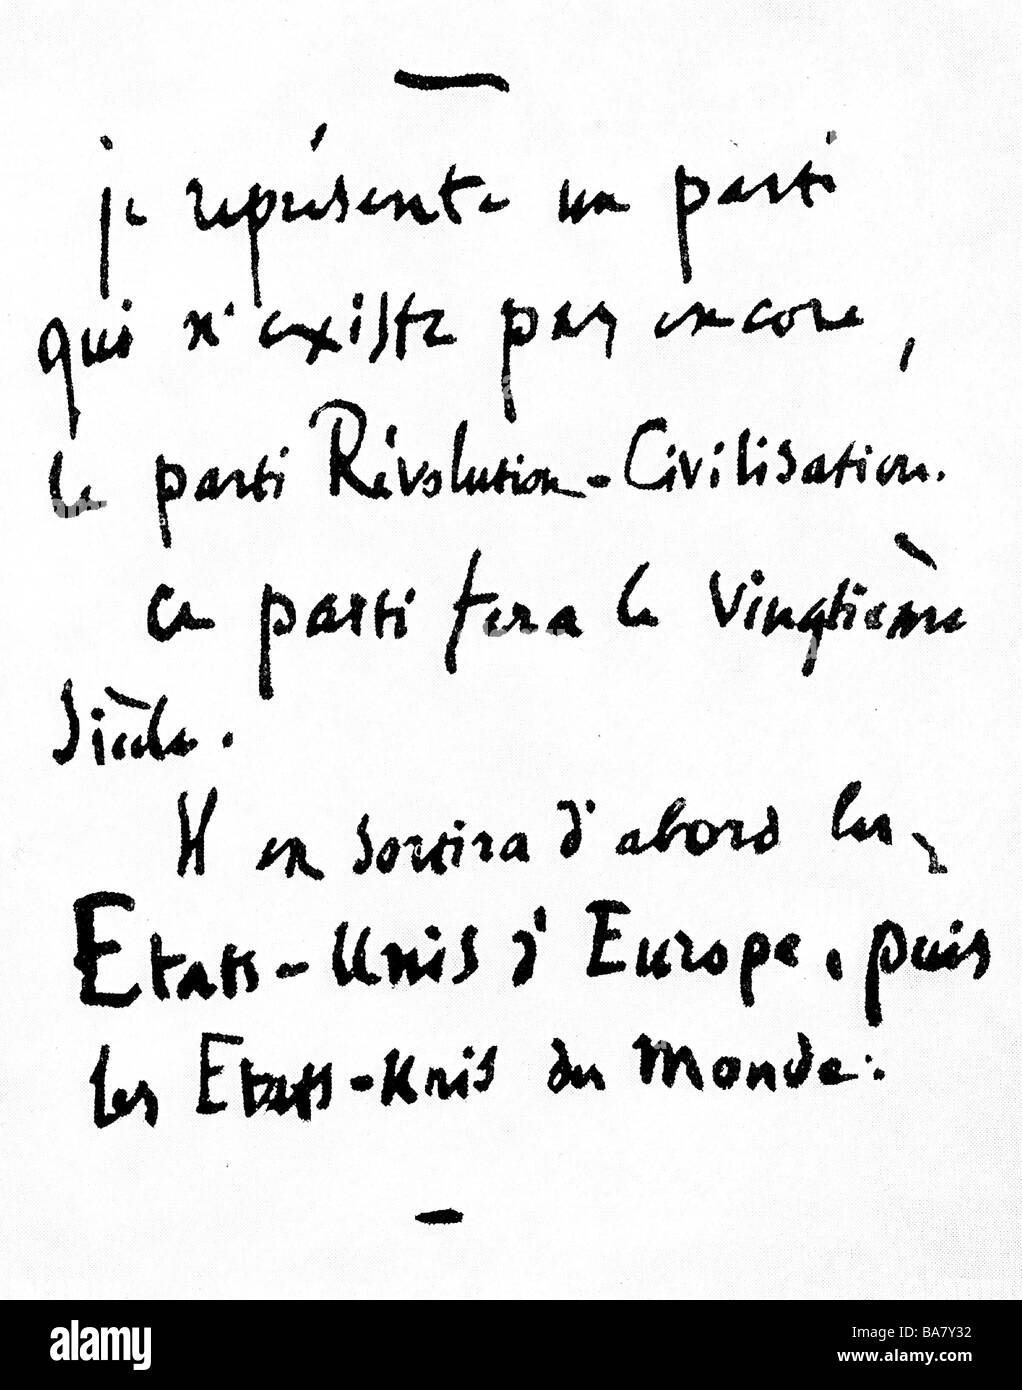 je représente un parti
qui n'existe pas encore,
le parti Révolution-Civilisation.
ce parti fera le vingtième
siècle.
Il en sortira d'abord les
Etats-Unis d'Europe, puis
les Etats-Unis du Monde.
alamy
Image ID: BA7Y32
www.alamy.com